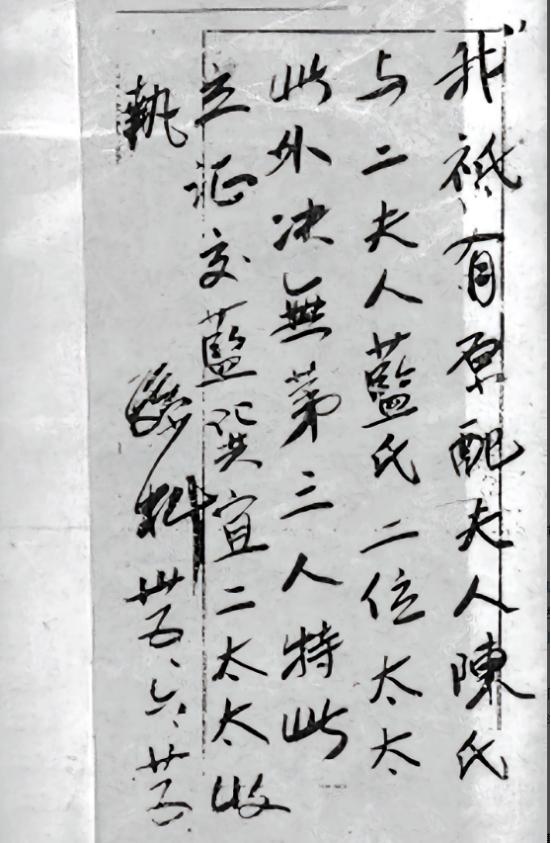 我祇有原配夫人陳氏
与二夫人藍氏二位太太
此外决無第三人特此
立证交藍巽宜二太太收
執
卅五、六、廿五